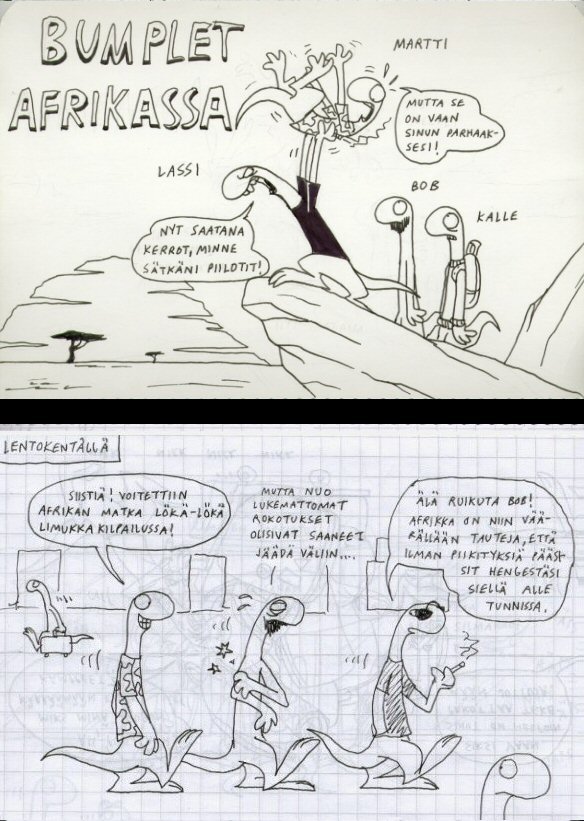 BUMPLET
AFRIKASSA
MARTTI
MUTTA SE
ON VAAN
SINUN PARHAAK-
SESI!
LASSI
BOB
KALLE
NYT SAATANA
KERROT, MINNE
SÄTKÄNI PIILOTIT!
LENTOKENTÄLLÄ
SIISTIÄ! VOITETTIIN
AFRIKAN MATKA LÖKÄ-LÖKÄ
LIMUKKA KILPAILUSSA!
MUTTA NUO
LUKEMATTOMAT
ROKOTUKSET
OLISIVAT SAANEET
JÄÄDÄ VÄLIIN...
ÄLÄ RUIKUTA BOB!
AFRIKKA ON NIIN VÄÄ-
RÄLLÄÄN TAUTEJA, ETTÄ
ILMAN PIIKITYKSIÄ PÄÄSI-
SIT HENGESTÄSI
SIELLÄ ALLE
TUNNISSA.